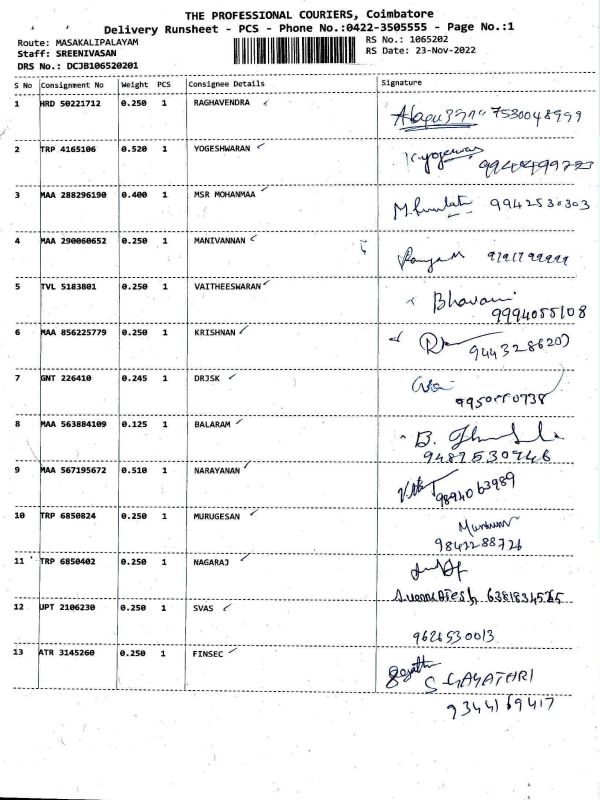 THE PROFESSIONAL COURIERS, Coimbatore
Delivery Runsheet - PCS - Phone No.:0422-3505555 - Page No.:1
Route: MASAKALIPALAYAM RS No.: 1065202
Staff: SREENIVASAN RS Date: 23-Nov-2022
DRS No.: DCJB106520201
S No Consignment No Weight PCS Consignee Details Signature
1 HRD 50221712 0.250 1 RAGHAVENDRA 7530048999
2 TRP 4165106 0.520 1 YOGESHWARAN K.yogeswaran
3 MAA 288296190 0.400 1 MSR MOHANMAA 9942530303
4 MAA 290060652 0.250 1 MANIVANNAN
5 TVL 5183801 0.250 1 VAITHEESWARAN Bhavani
9994055108
6 MAA 856225779 0.250 1 KRISHNAN
7 GNT 226410 0.245 1 DRJSK
8 MAA 563884109 0.125 1 BALARAM B.
9487530746
9 MAA 567195672 0.510 1 NARAYANAN
9894063989
10 TRP 6850824 0.250 1 MURUGESAN
9842288726
11 TRP 6850402 0.250 1 NAGARAJ
12 UPT 2106230 0.250 1 SVAS
9626530013
13 ATR 3145260 0.250 1 FINSEC
S GAYATHRI
9344169417